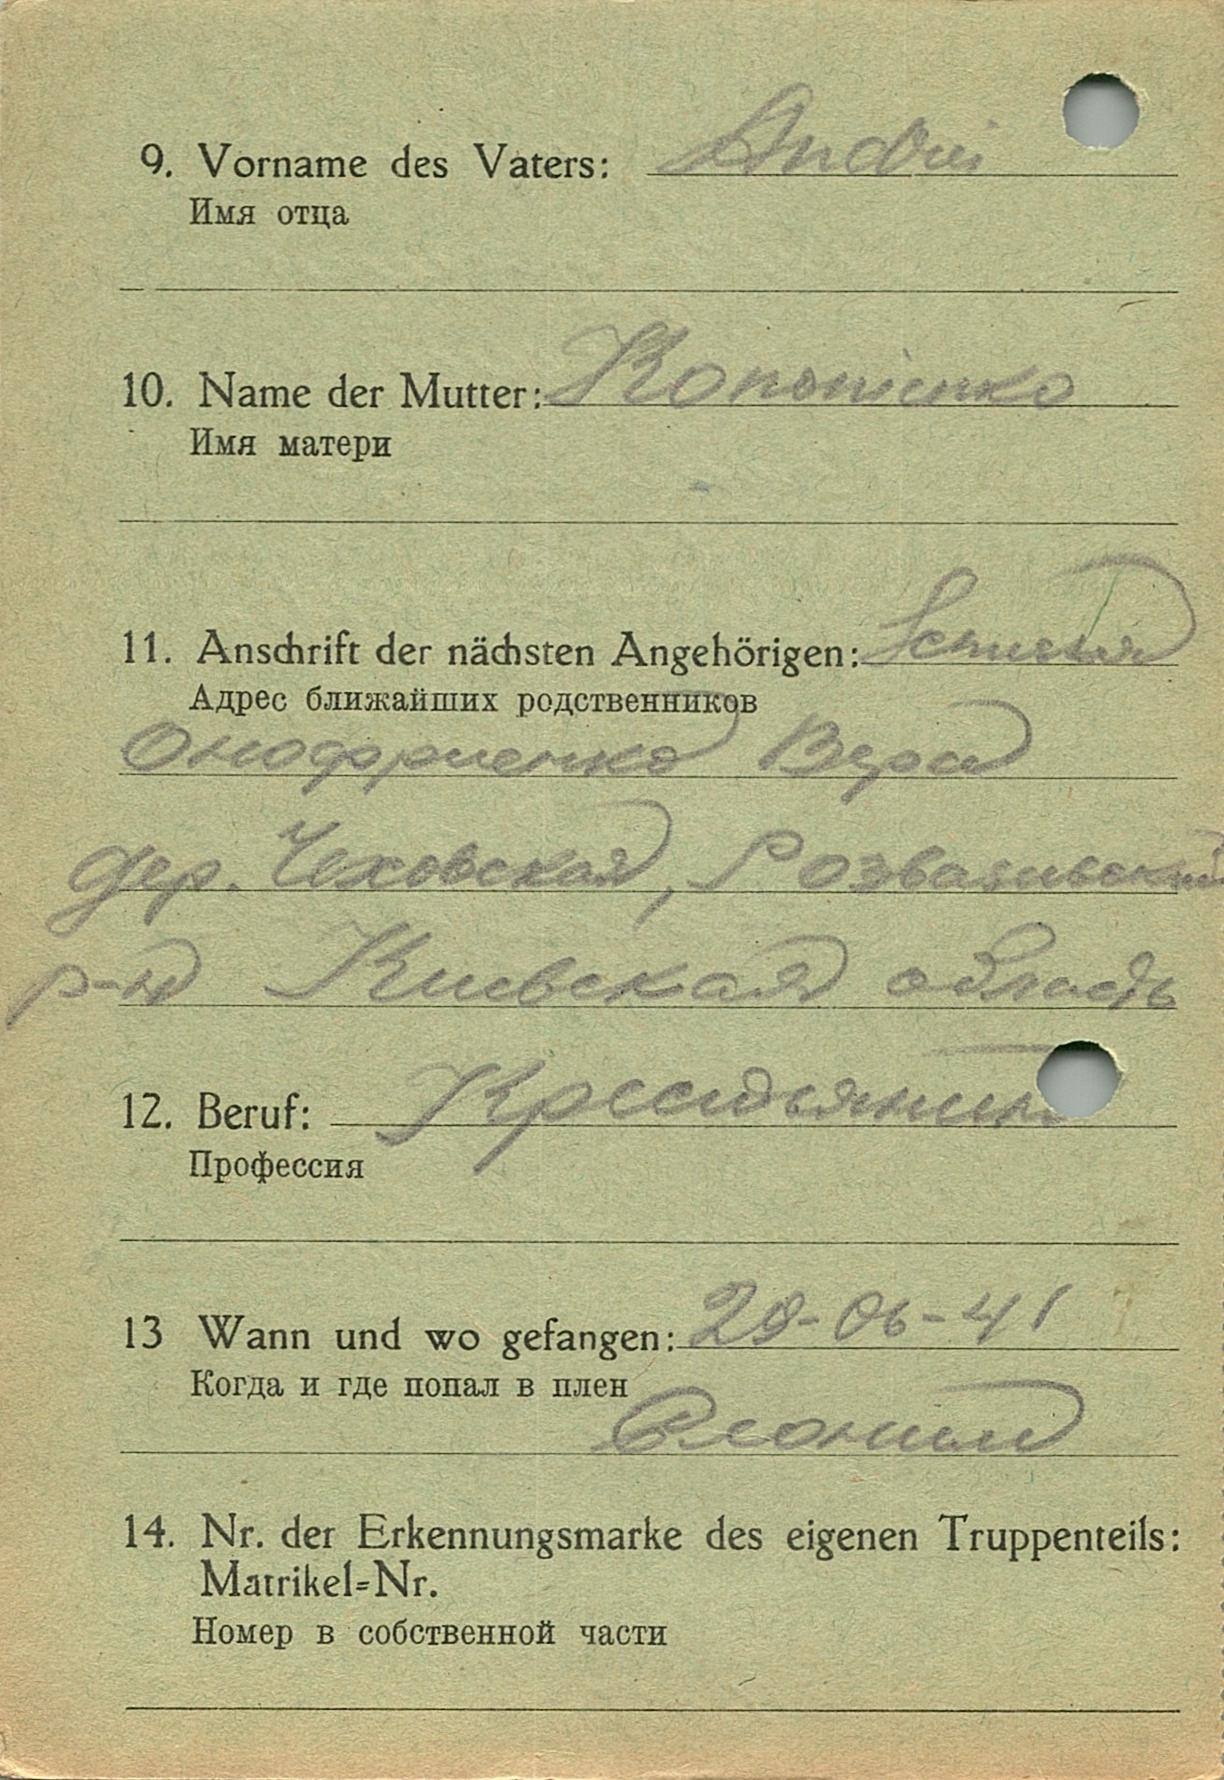 9. Vorname des Vaters: Andrei
Имя отца
10. Name der Mutter: Kononienko
Имя матери
11. Anschrift der nächsten Angehörigen:
Адрес ближайших родственников
Онофриенко Вера
дер. Чеховская, Розважевский
р-н Киевская область
12. Beruf: Крестьянин
Профессия
13 Wann und wo gefangen: 28-06-41
Когда и где попал в плен
Слоним
14. Nr. der Erkennungsmarke des eigenen Truppenteils:
Matrikel=Nr.
Номер в собственной части